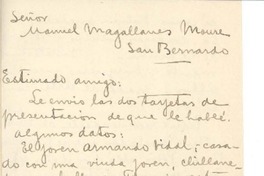 Señor
Manuel Magallanes Moure
San Bernardo
Estimado amigo:
Le envio las dos tarjetas de
presentación de que le hablé.
algunos datos:
El joven Armando Vidal, casa-
do con una viuda joven, chillane-